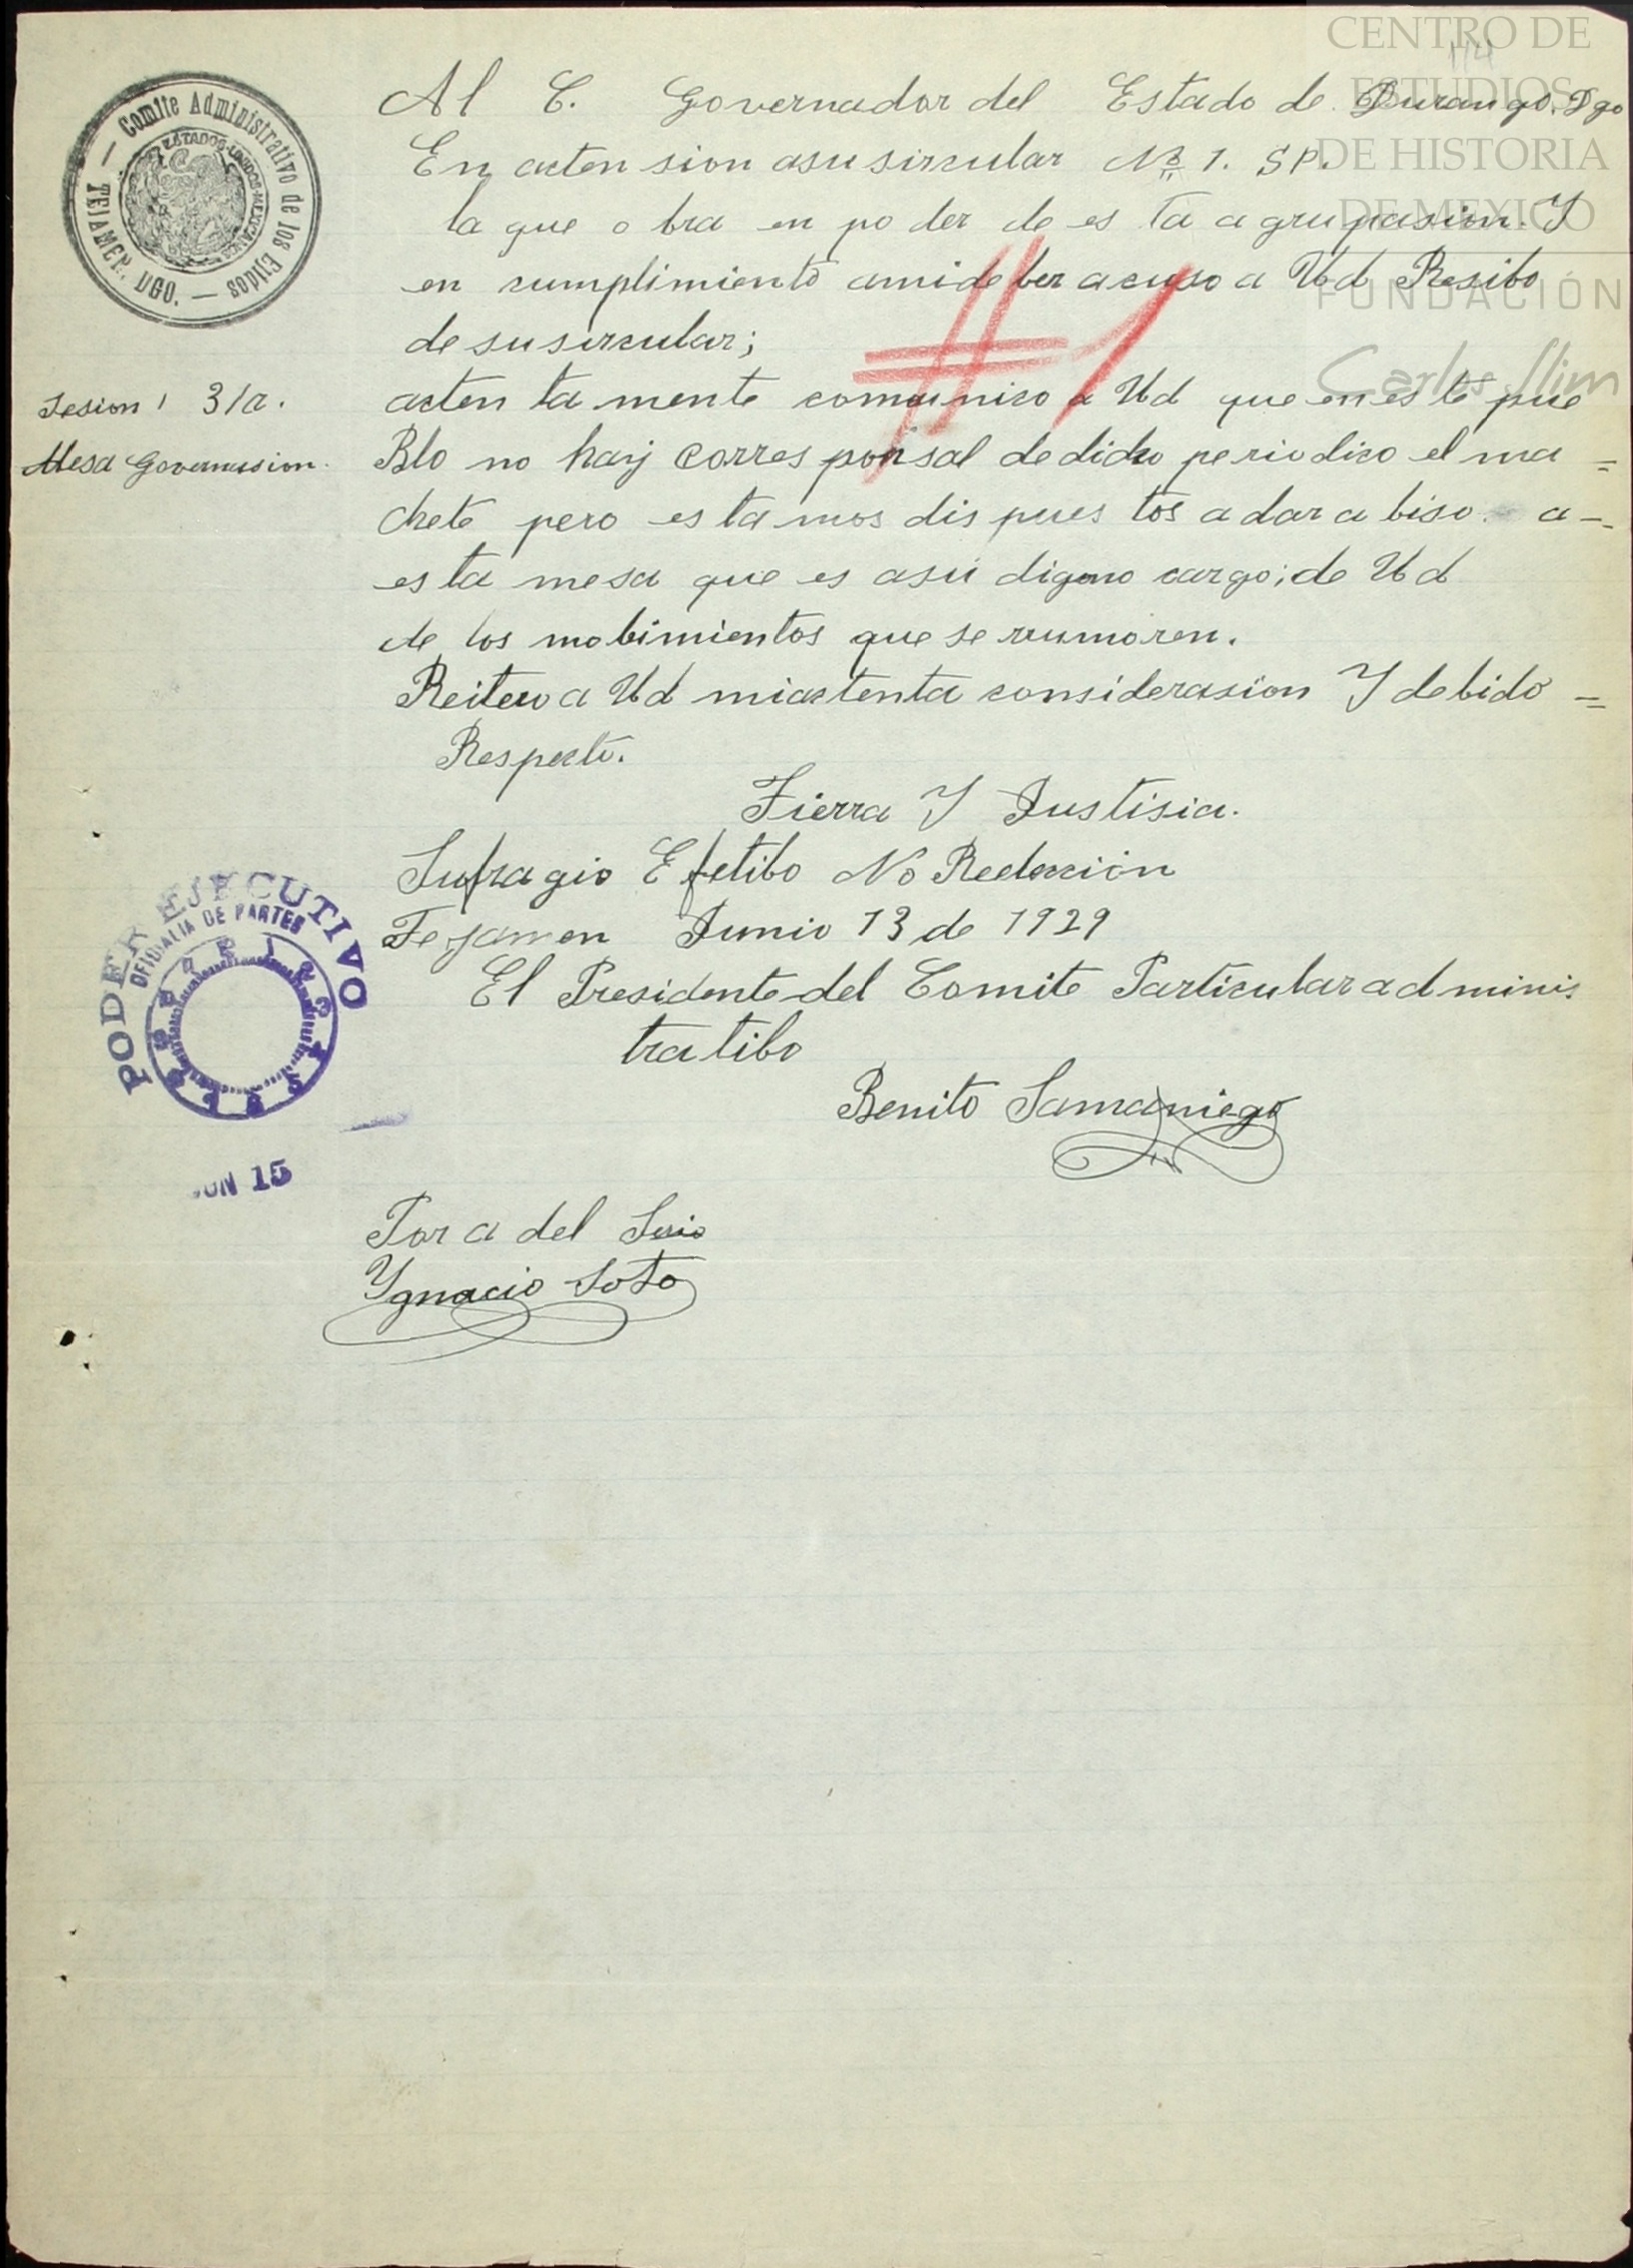 CENTRO DE
ESTUDIOS
DE HISTORIA
DE MEXICO
FUNDACIÓN
Carlos Slim
114
— Comite Administrativo de los Ejidos —
TEJAMEN. DGO.
ESTADOS-UNIDOS-MEXICANOS
Al C. Governador del Estado de Durango. Dgo
En acten sion asu sircular No 1. SP.
la que o bra en po der de es ta a grupasion. Y
en cumplimiento amide ber acuso a Ud Resibo
de su sircular;
Sesion 3/a.
Mesa Governasion.
acten ta mente comunico a Ud que en es te pue
Blo no hay Corres ponsal de dicho periodico el ma =
chete pero es ta mos dis pues tos a dar a biso. a -
es ta mesa que es asu digno cargo; de Ud
de los mobimientos que se rumoren.
Reitero a Ud mi actenta considerasion Y debido =
Respecto.
Tierra Y Justisia.
Sufragio Efetibo No Reelección
Tejamen Junio 13 de 1929
El Presidente del Comite Particular ad minis
tra tibo
Benito Samaniego
#1
PODER EJECUTIVO
OFICIALIA DE PARTES
JUN 15
Por a del Srio
Ygnacio Soto